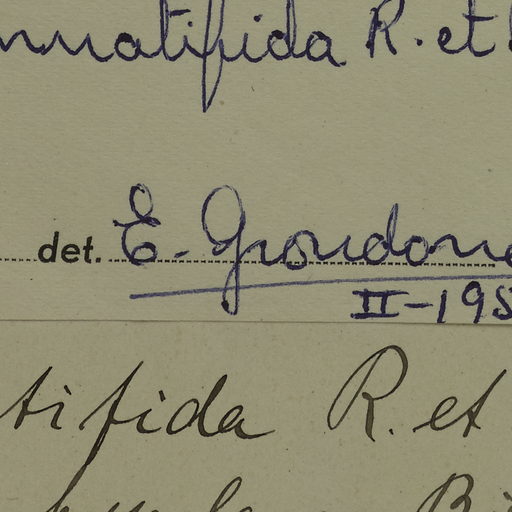 nnatifida R. et
det. E. Grondona
II-195
tifida R. et